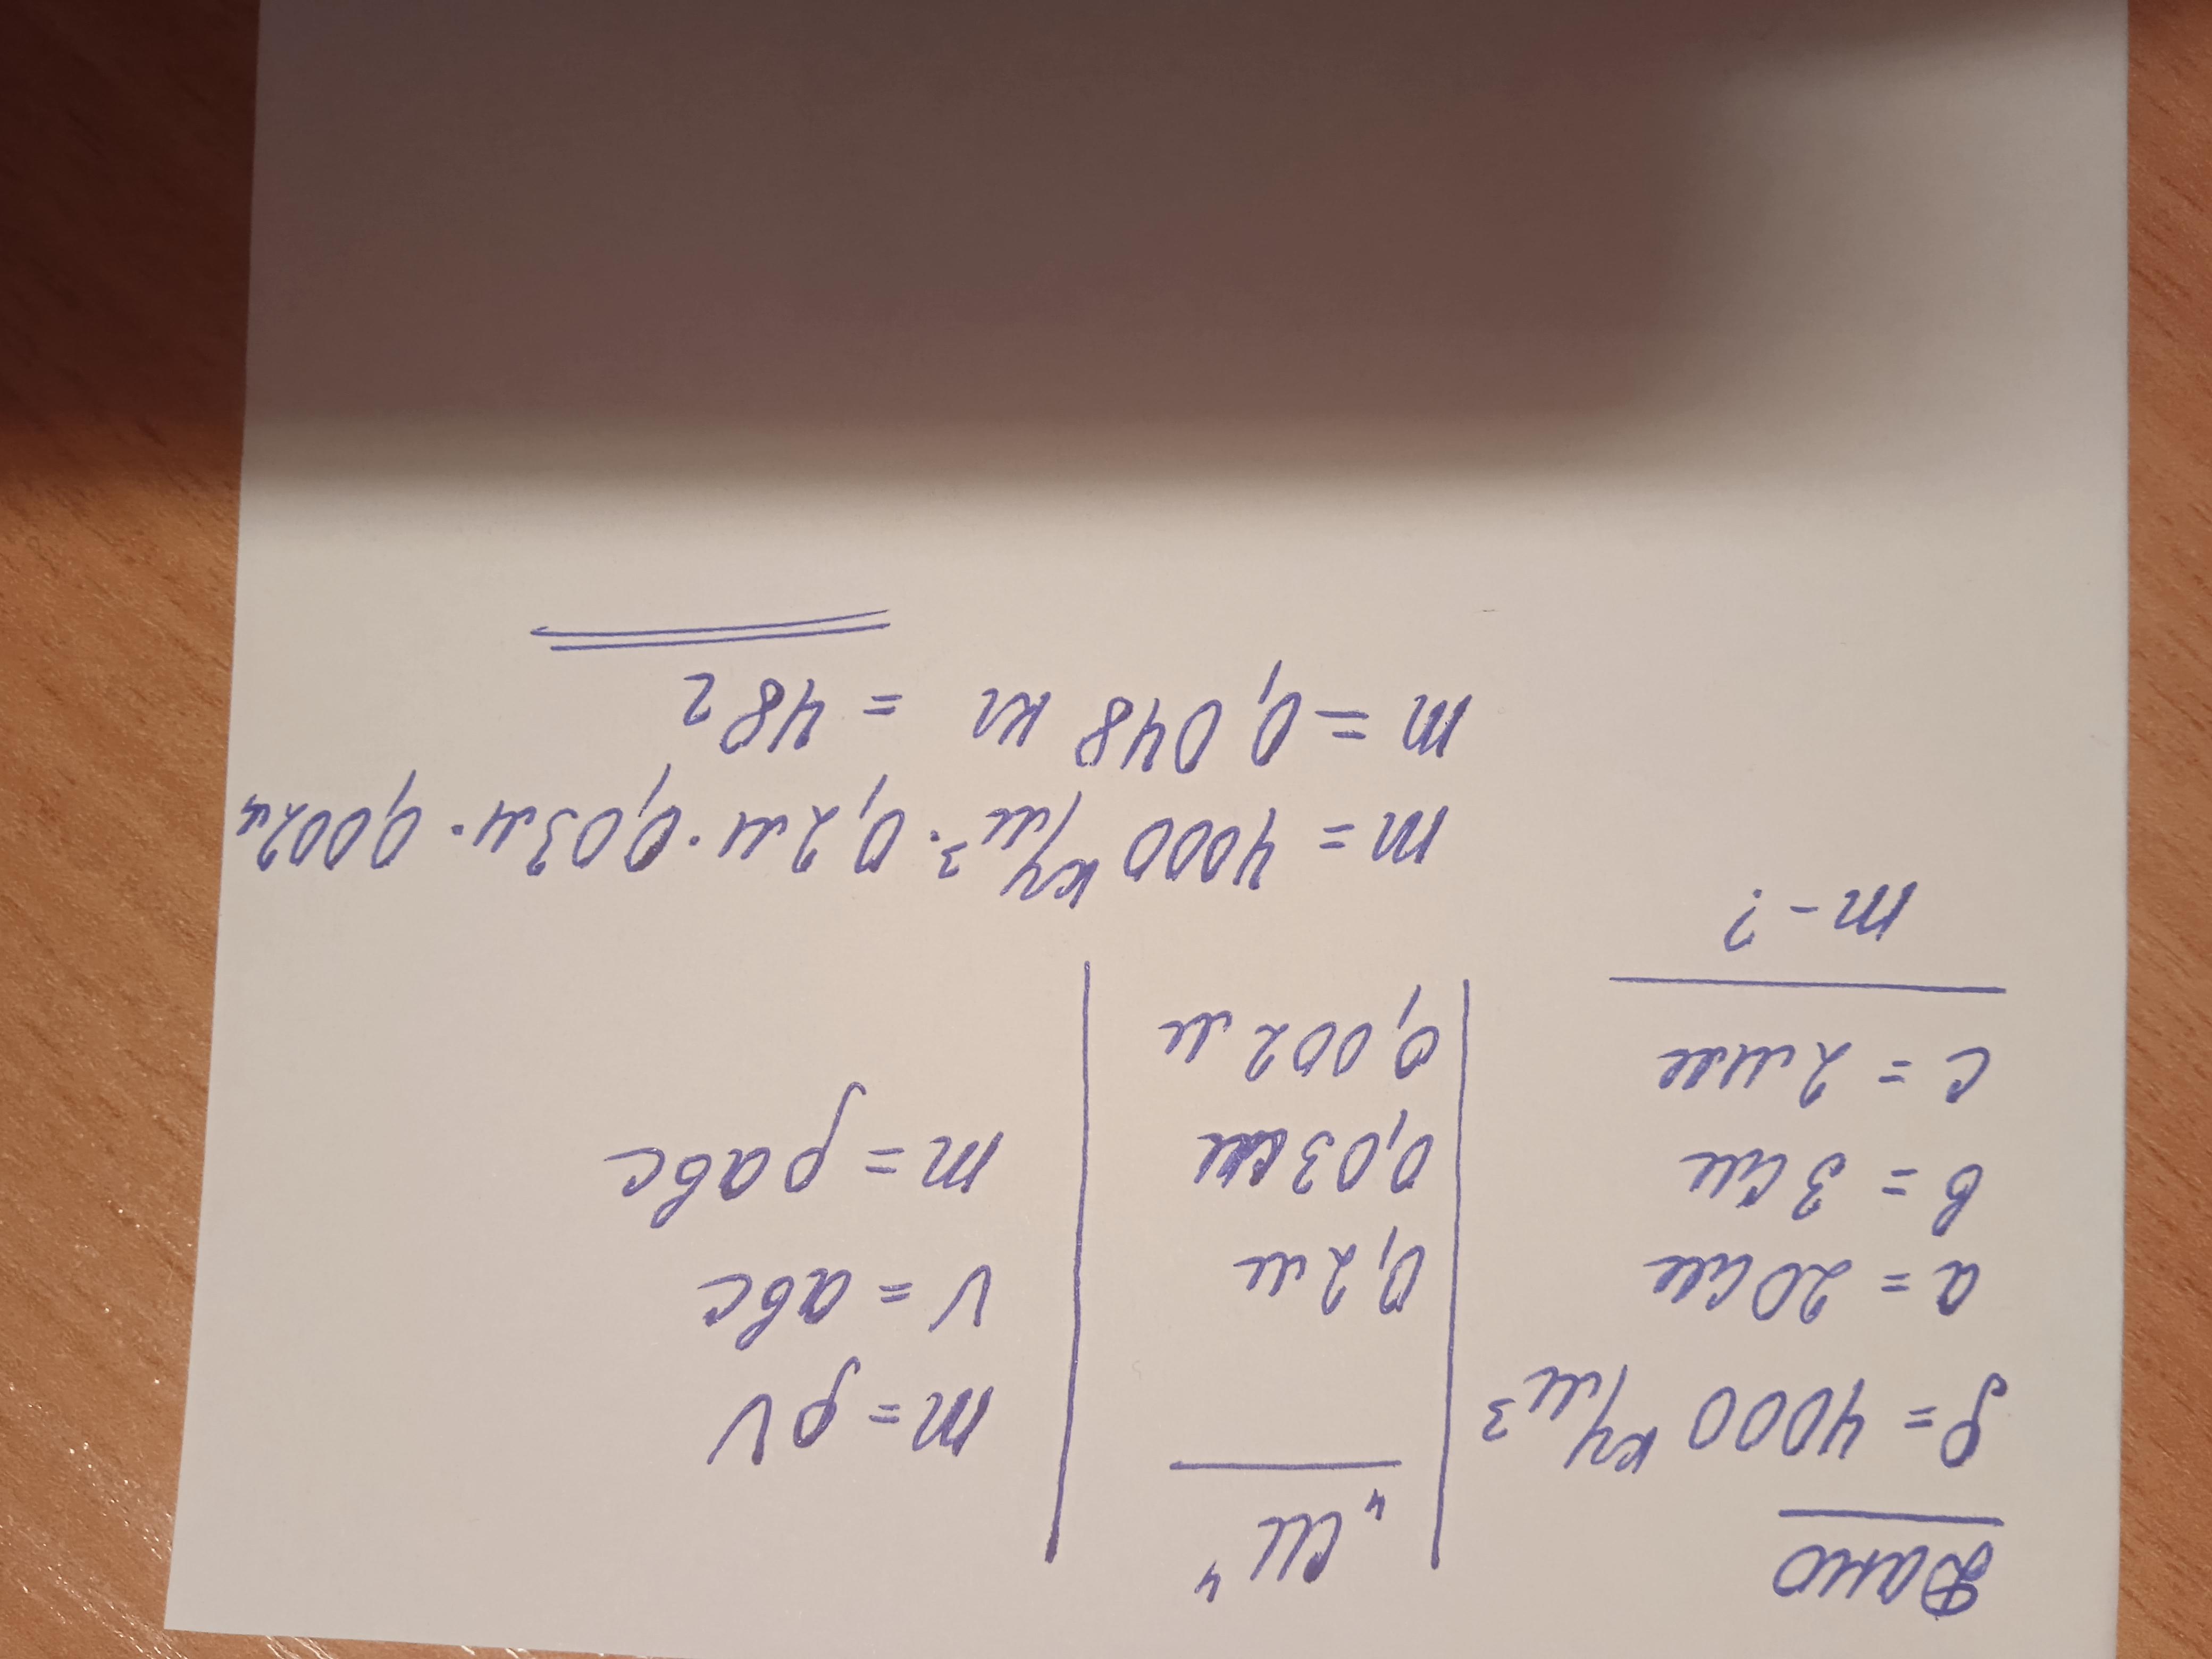 Дано
"СИ"
ρ = 4000 кг/м³
m = ρV
a = 20 см
0,2 м
V = abc
b = 3 см
0,03 м
m = ρabc
c = 2 мм
0,002 м
m - ?
m = 4000 кг/м³ · 0,2 м · 0,03 м · 0,002 м
m = 0,048 кг = 48 г